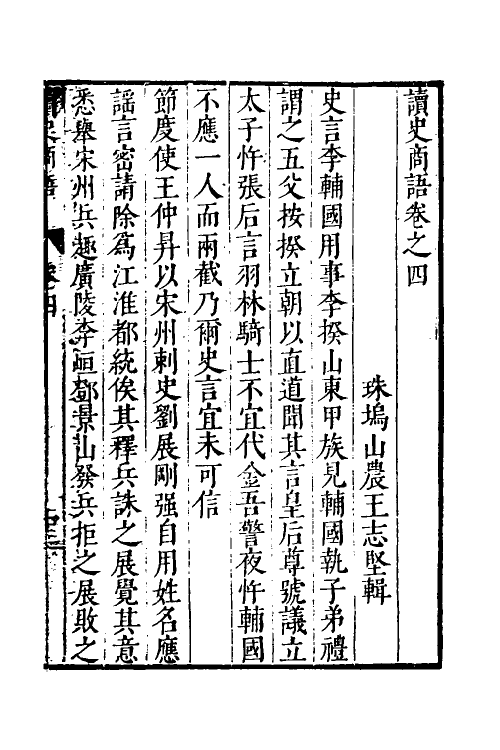 讀史商語卷之四
珠塢山農王志堅輯
史言李輔國用事李揆山東甲族見輔國執子弟禮
謂之五父按揆立朝以直道聞其言皇后尊號議立
太子忤張后言羽林騎士不宜代金吾警夜忤輔國
不應一人而兩截乃爾史言宜未可信
節度使王仲昇以宋州刺史劉展剛强自用姓名應
謡言密請除爲江淮都統俟其釋兵誅之展覺其意
悉舉宋州兵趣廣陵李峘鄧景山發兵拒之展敗之
讀史商語
卷四